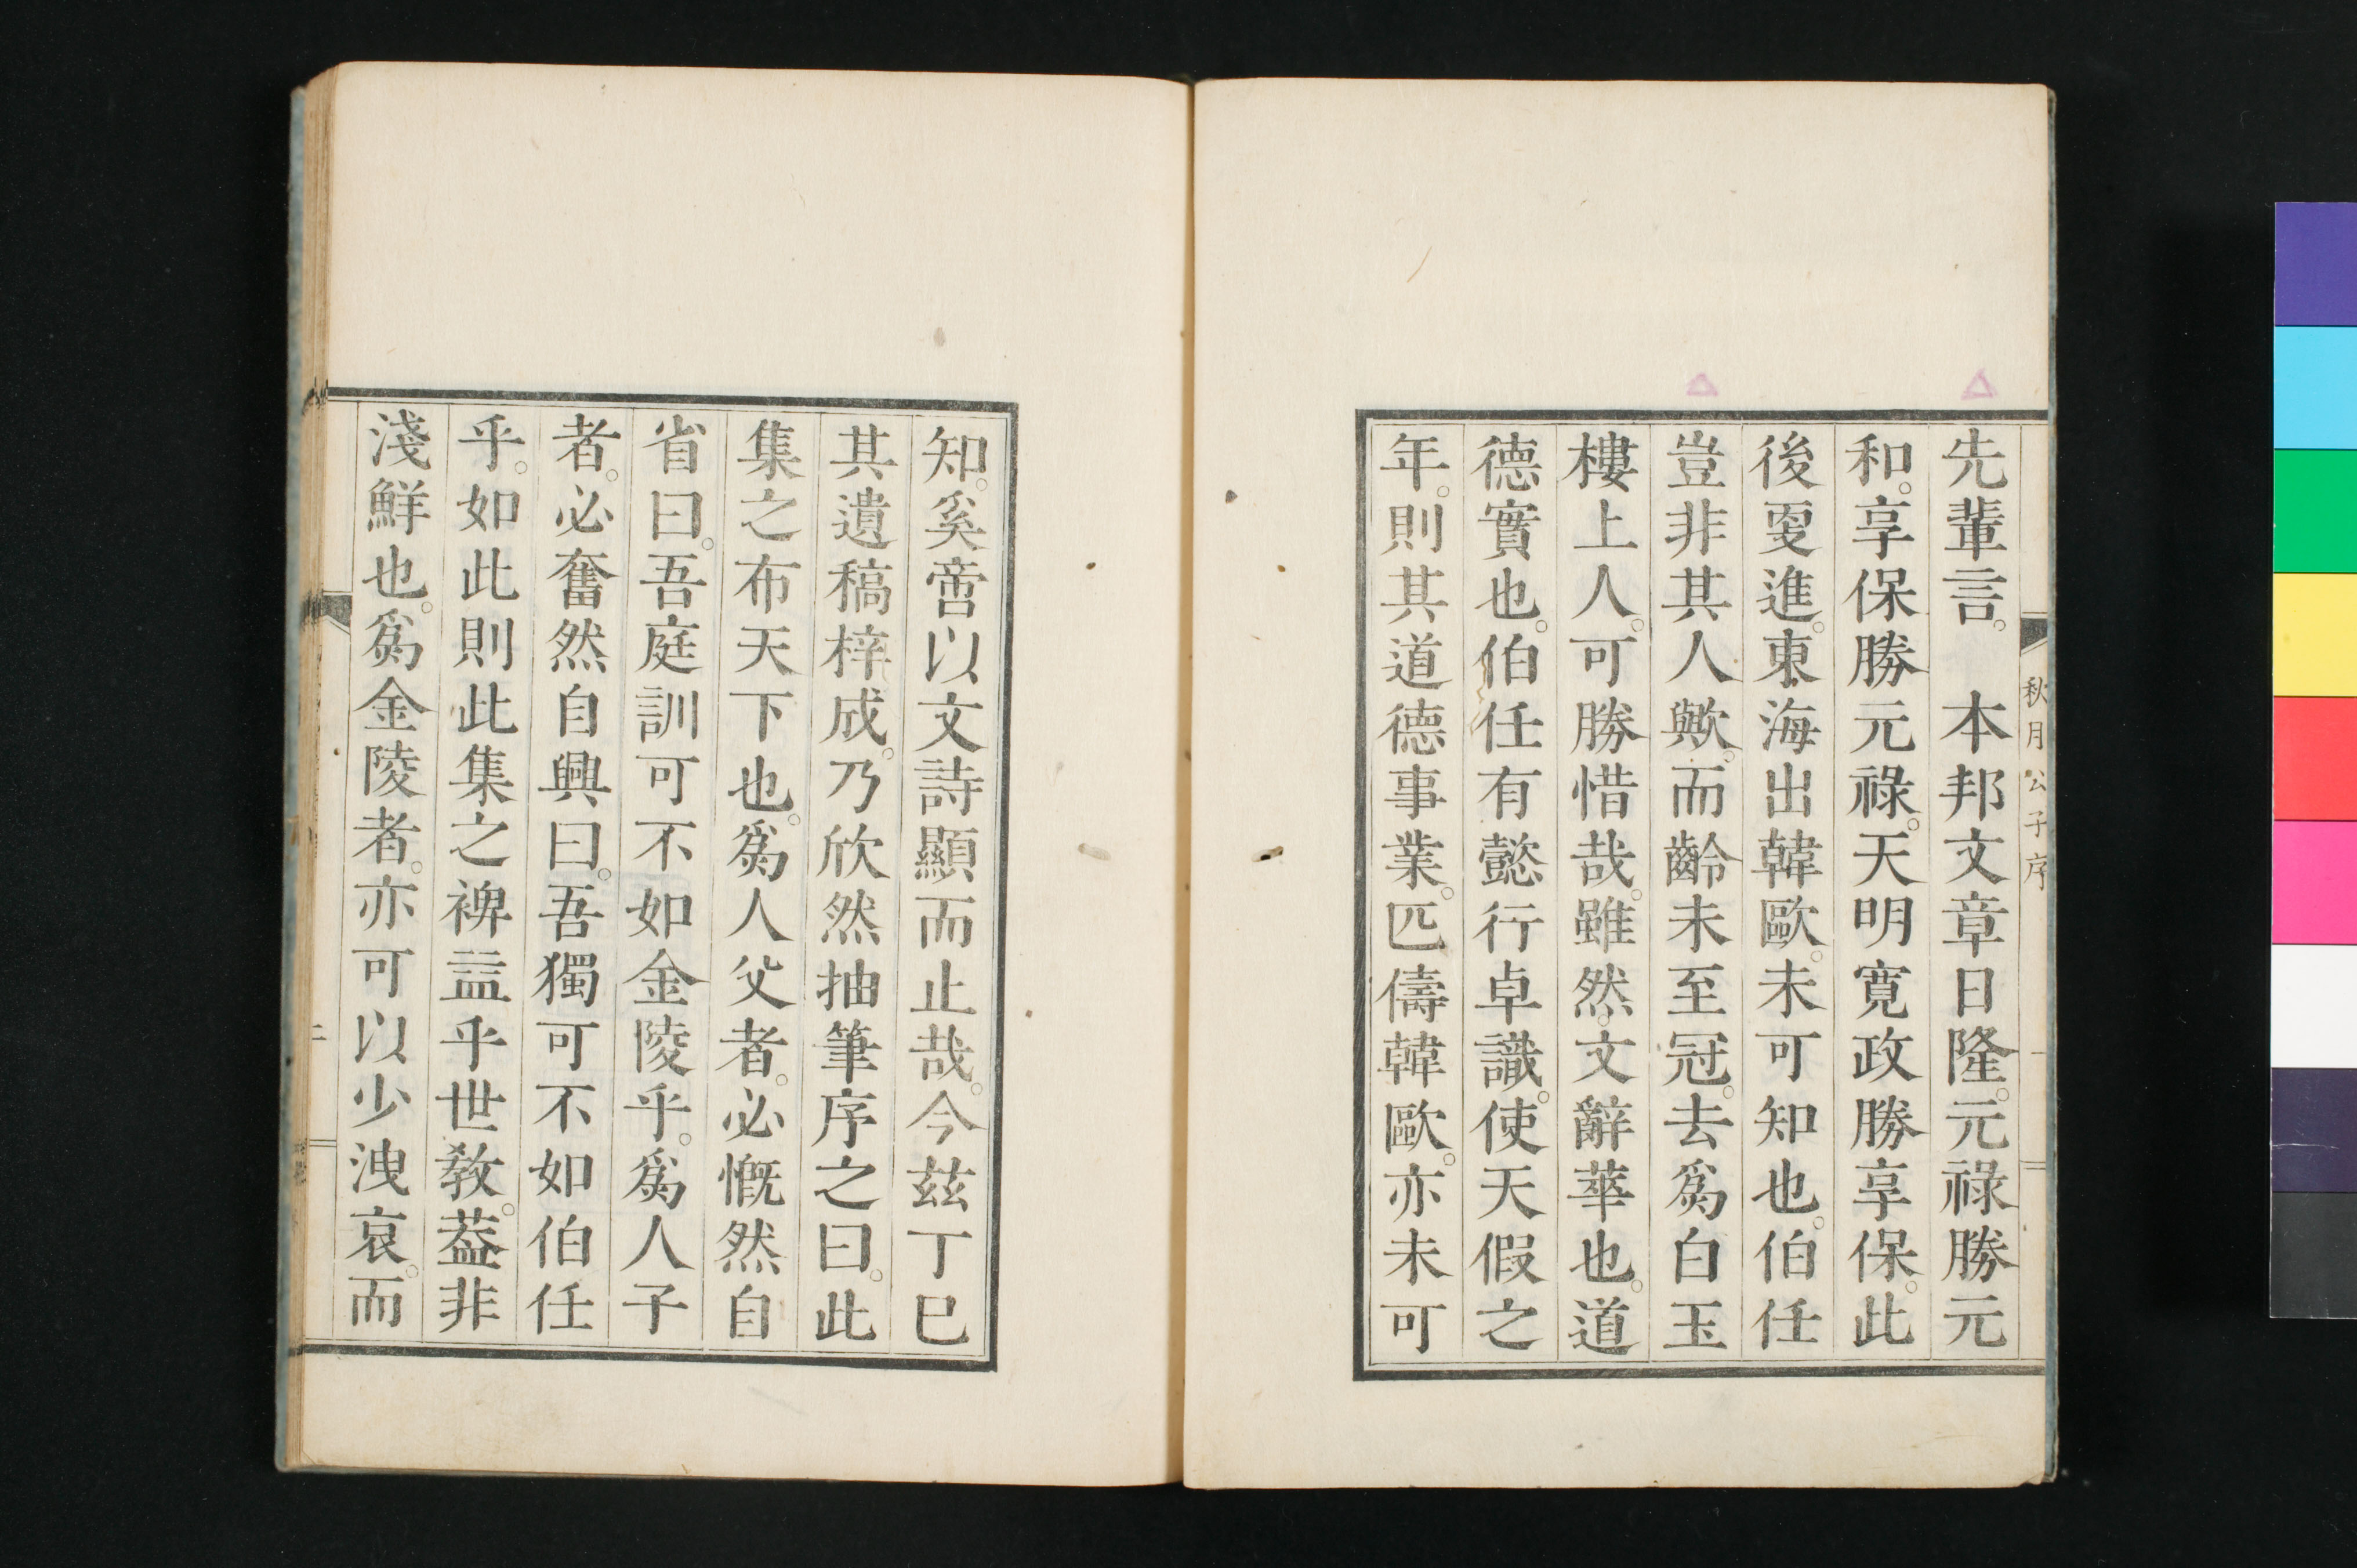 秋月公子序
一
先輩言。　本邦文章日隆。元祿勝元
和。享保勝元祿。天明寛政勝享保。此
後叓進。東海出韓歐。未可知也。伯任
豈非其人歟。而齡未至冠。去爲白玉
樓上人。可勝惜哉。雖然。文辭華也。道
德實也。伯任有懿行卓識。使天假之
年。則其道德事業。匹儔韓歐。亦未可
知。奚啻以文詩顯而止哉。今茲丁巳
其遺稿梓成。乃欣然抽筆序之曰。此
集之布天下也。爲人父者。必慨然自
省曰。吾庭訓可不如金陵乎。爲人子
者。必奮然自興曰。吾獨可不如伯任
乎。如此則此集之裨益乎世敎。葢非
淺鮮也。爲金陵者。亦可以少洩哀。而